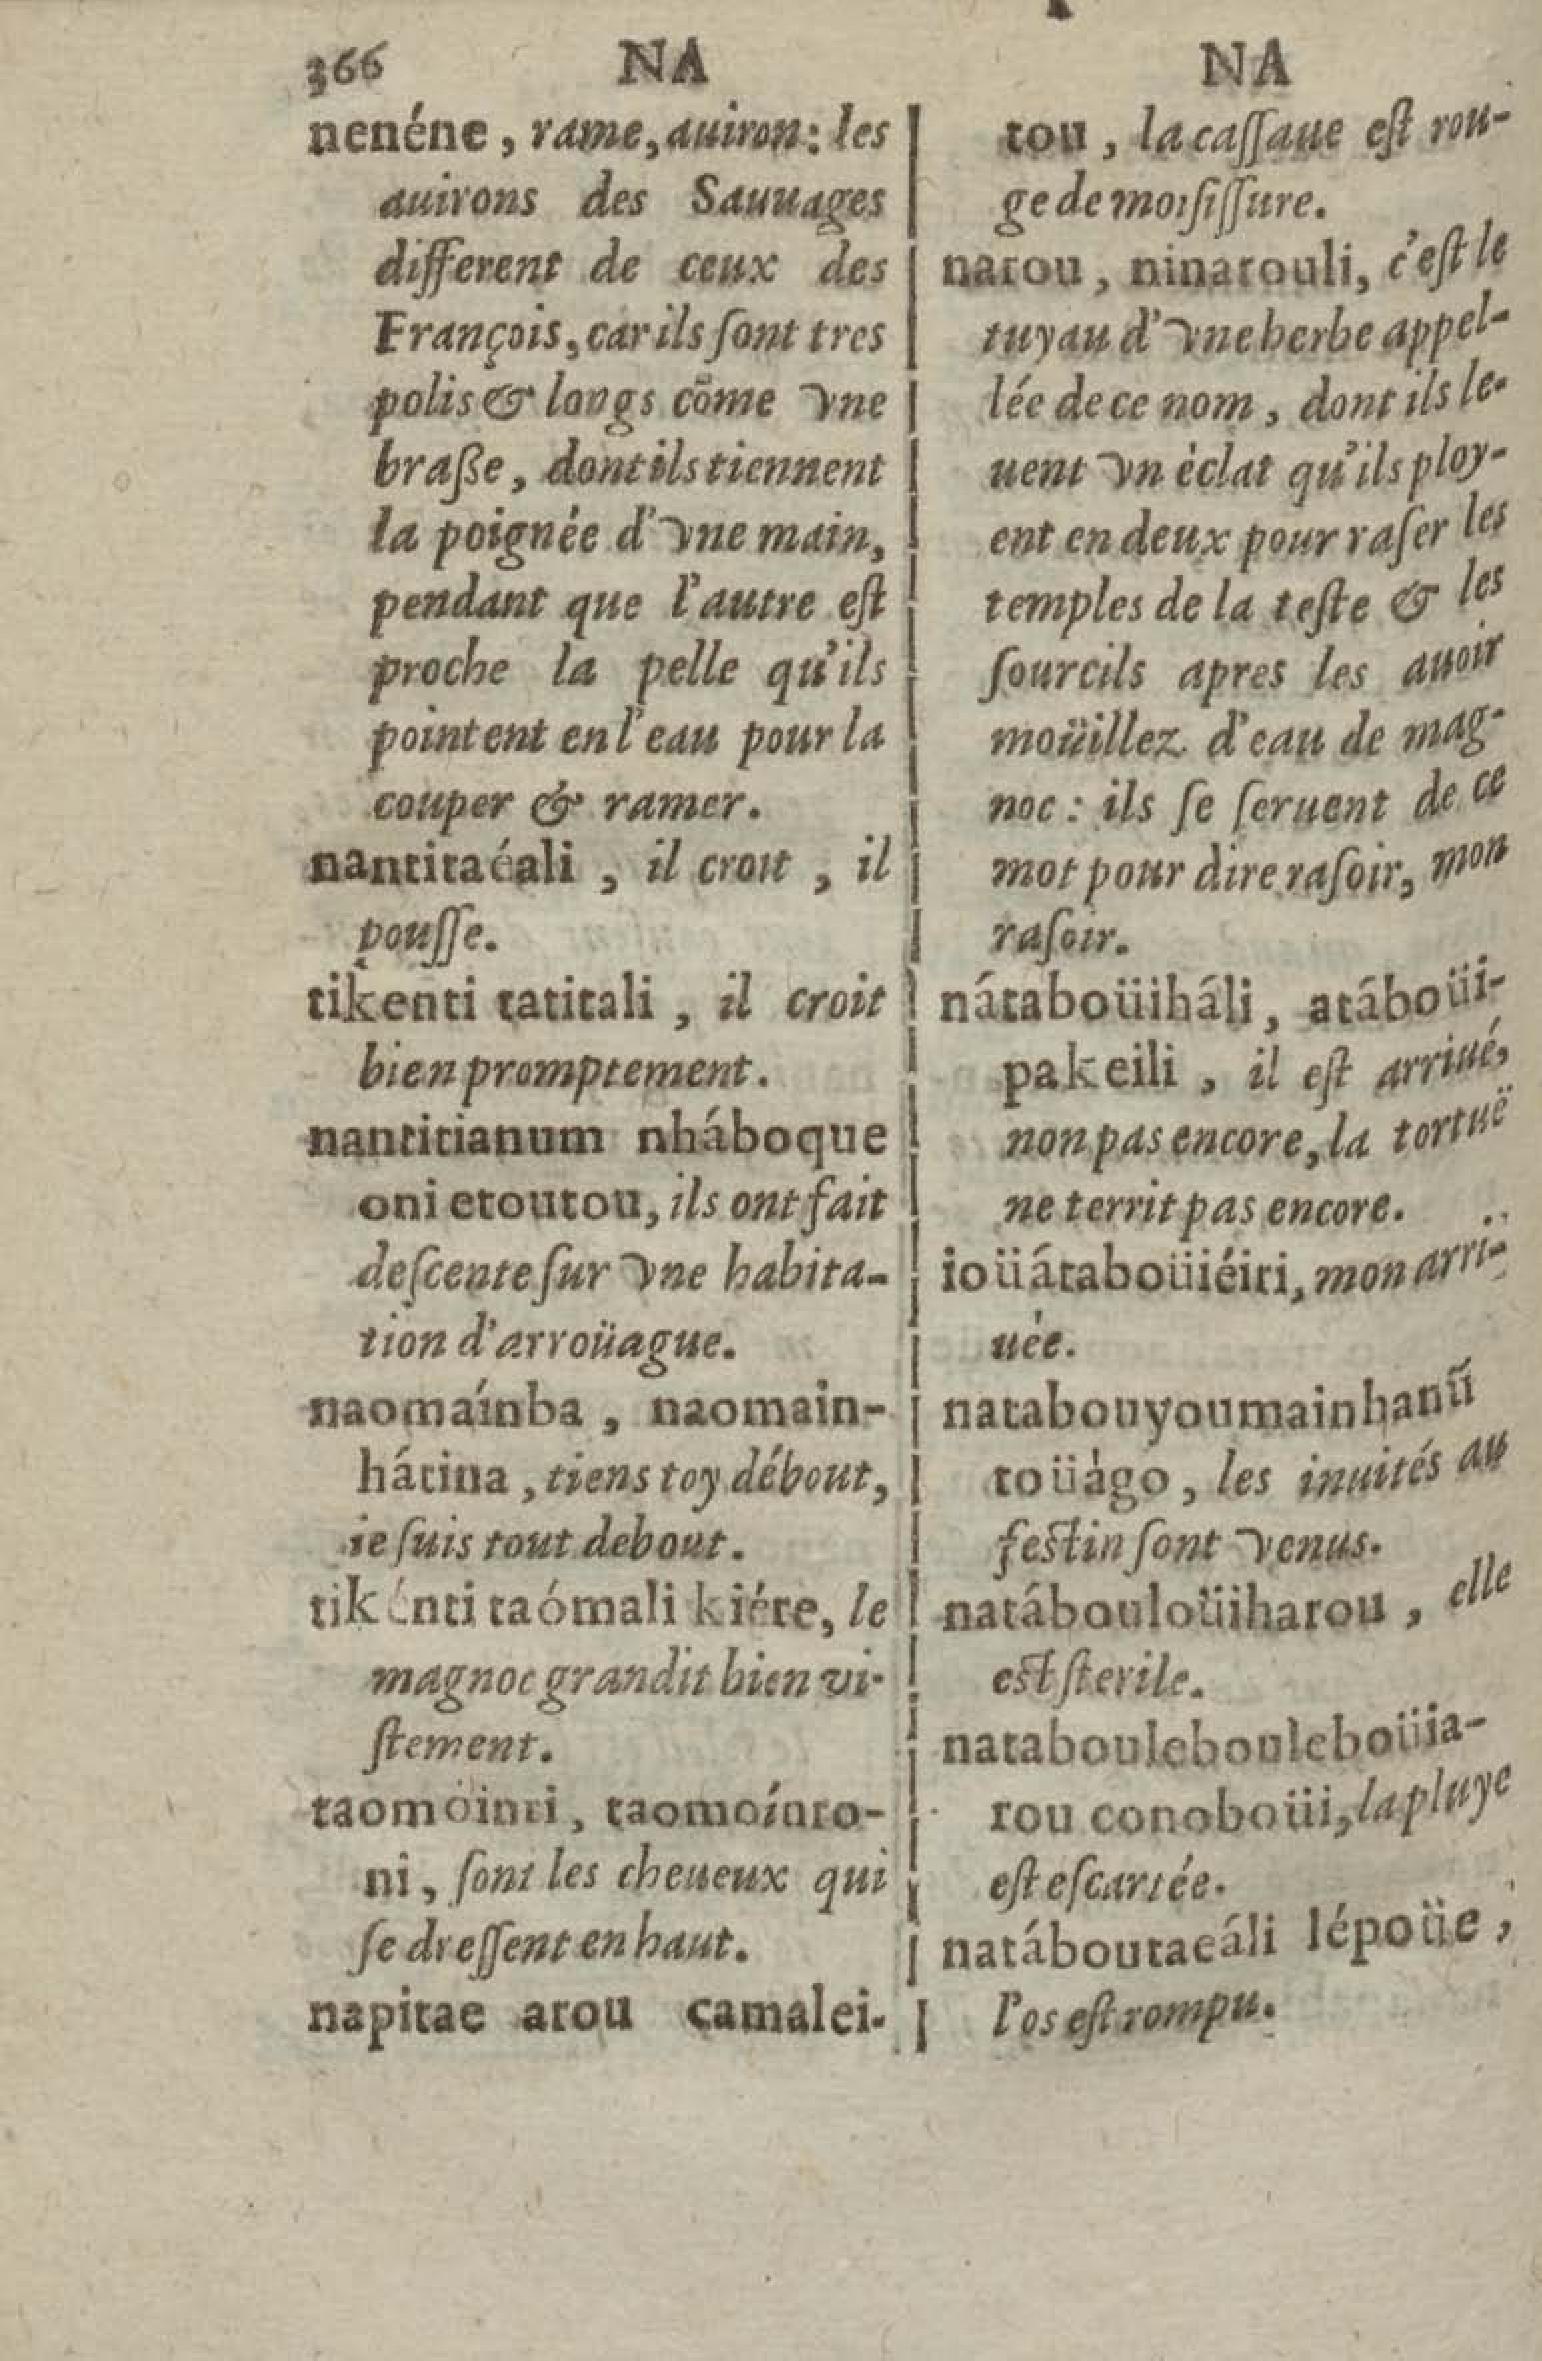 366 NA NA
nenéne, rame, auiron: les
auirons des Sauuages
different de ceux des
François, car ils ſont tres
polis & longs cōme vne
braße, dont ils tiennent
la poignée d'vne main,
pendant que l'autre eſt
proche la pelle qu'ils
pointent en l'eau pour la
couper & ramer.
nantitaéali, il croit, il
pouſſe.
tikenti tatitali, il croit
bien promptement.
nantitianum nháboque
oni etoutou, ils ont fait
deſcente ſur vne habita-
tion d'arroüague.
naomaínba, naomain-
hátina, tiens toy débout,
ie ſuis tout debout.
tikénti taómali kiére, le
magnoc grandit bien vi-
ſtement.
taomöinti, taomoínto-
ni, ſont les cheueux qui
ſe dreſſent en haut.
napitae arou camalei-
tou, la caſſaue eſt rou-
ge de moiſiſſure.
natou, ninatouli, c'eſt le
tuyau d'vne herbe appel-
lée de ce nom, dont ils le-
uent vn éclat qu'ils ploy-
ent en deux pour raſer les
temples de la teſte & les
ſourcils apres les auoir
moüillez d'eau de mag-
noc: ils ſe ſeruent de ce
mot pour dire raſoir, mon
raſoir.
nátaboüiháli, atáboüi-
pakeili, il eſt arriué,
non pas encore, la tortuë
ne territ pas encore.
ioüátaboüiéiri, mon arri-
uée.
natabouyoumainhanũ
toüàgo, les inuités au
feſtin ſont venus.
natábouloüiharou, elle
eſt ſterile.
nataboulebouleboüia-
rou conoboüi, la pluye
eſt eſcartée.
natáboutaeáli lépoüe,
l'os eſt rompu.